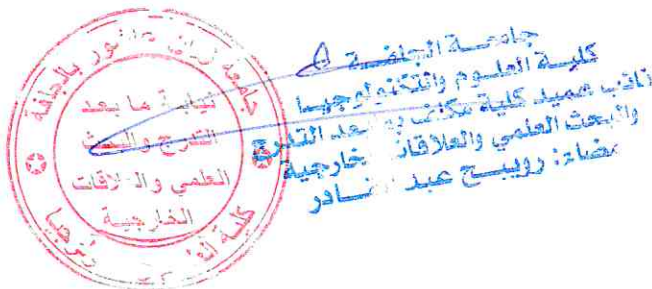 جامعة زيان عاشور بالجلفة
نيابة ما بعد
التدرج والبحث
العلمي والعلاقات
الخارجية
جامعـــة الجلفـــة
كليـة العلـوم والتكنولوجيـا
نائب عميد كلية مكلف بما بعد التدرج
والبحث العلمي والعلاقات الخارجية
إمضاء: رويبـح عبد القـادر